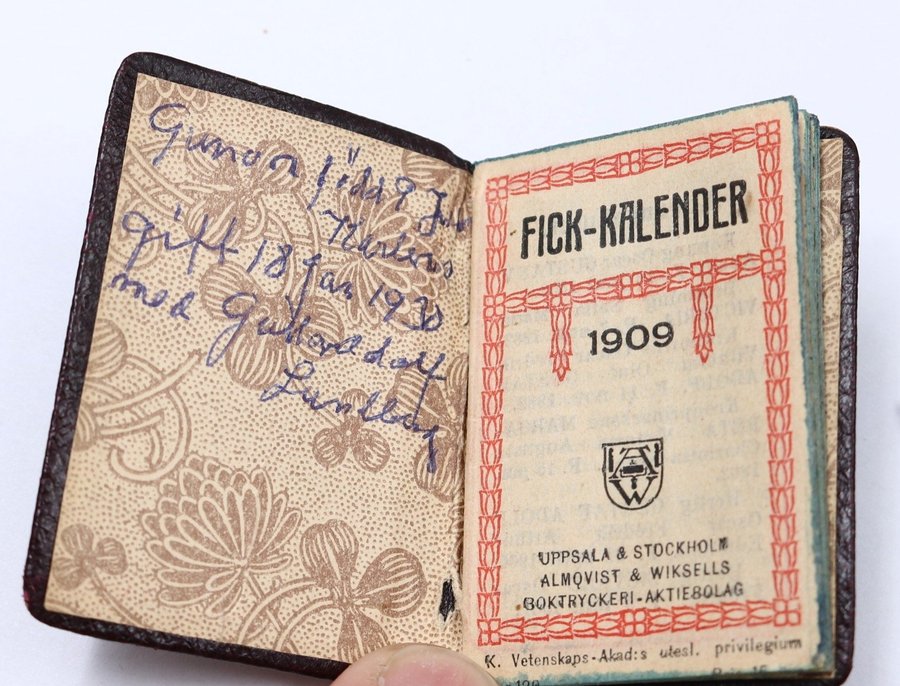 Gunvor född 9 Jun
gift 18 Jan 1930
med
Lundberg
FICK-KALENDER
1909
A W
UPPSALA & STOCKHOLM
ALMQVIST & WIKSELLS
BOKTRYCKERI-AKTIEBOLAG
K. Vetenskaps-Akad:s utesl. privilegium